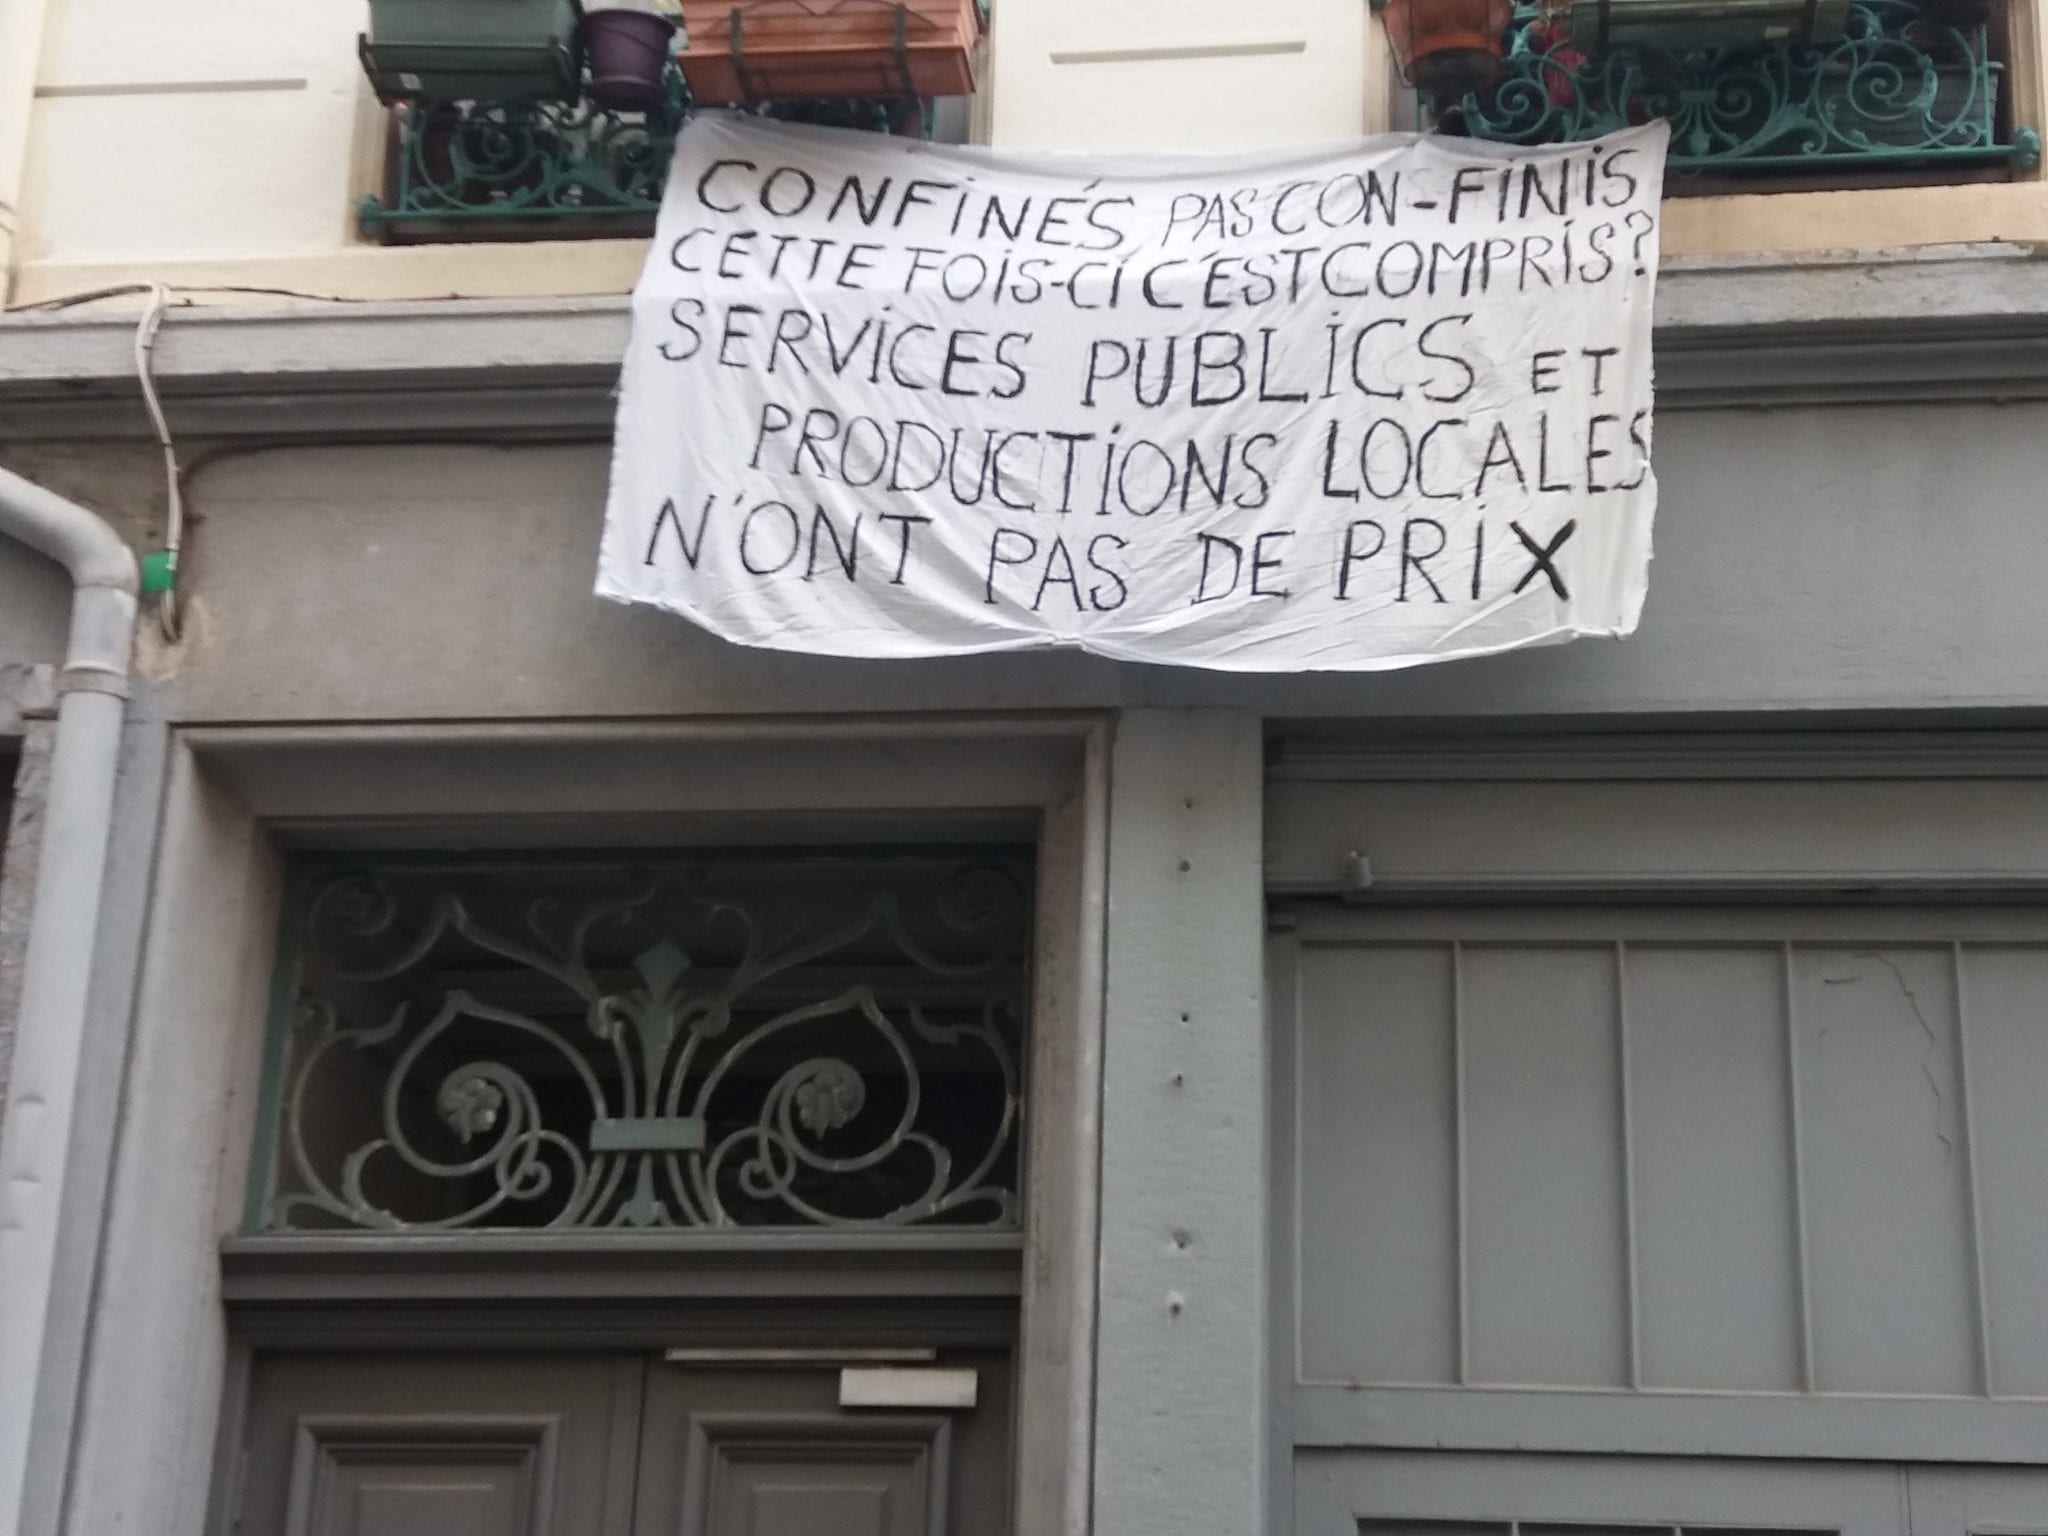 CONFINÉS PAS CON-FINIS
CETTE FOIS-CI C'EST COMPRIS?
SERVICES PUBLICS ET
PRODUCTIONS LOCALES
N'ONT PAS DE PRIX